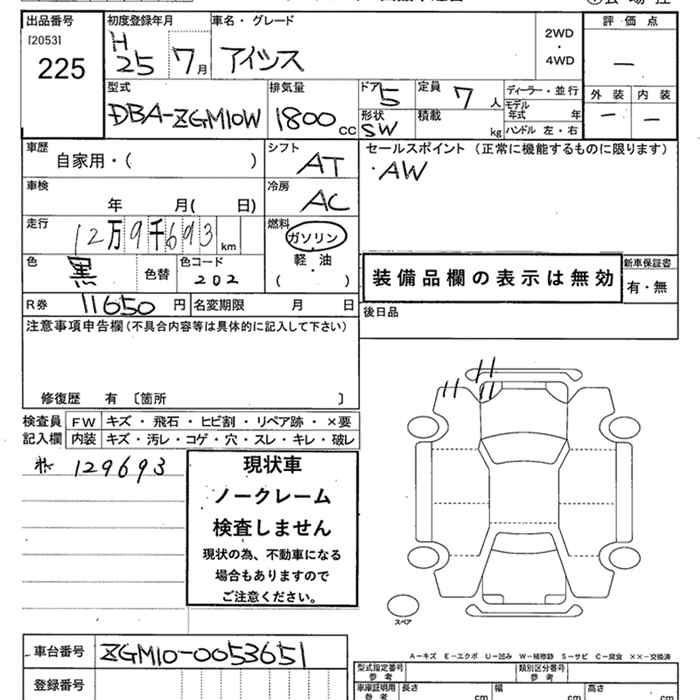 出品番号 初度登録年月 車名・グレード 評価点
[2053] H 25 7月 アイシス 2WD ・ 4WD ー
225
型式 排気量 ドア 5 定員 7人 ディーラー・並行 外装 内装
DBA-ZGM10W 1800cc 形状 SW 積載 kg モデル年式 年 ー ー
ハンドル 左・右
車歴 シフト セールスポイント (正常に機能するものに限ります)
自家用・( ) AT ・AW
車検 年 月( 日) 冷房 AC
走行 12万9千693km 燃料 ガソリン
軽・油
( )
色 黒 色替 色コード 202 装備品欄の表示は無効 新車保証書
有・無
R券 11650円 名変期限 月 日 後日品
注意事項申告欄(不具合内容等は具体的に記入して下さい)
修復歴 有 〔箇所 〕
検査員 FW キズ・飛石・ヒビ割・リペア跡・×要
記入欄 内装 キズ・汚レ・コゲ・穴・スレ・キレ・破レ
129693 現状車
ノークレーム
検査しません
現状の為、不動車になる
場合もありますので
ご注意ください。
スペア
A-キズ E-エクボ U-凹み W-補修跡 S-サビ C-腐食 ××-交換済
車台番号 ZGM10-0053651 型式指定番号 参考 類別区分番号 参考
登録番号 車庫証明用 参考 長さ cm 幅 cm 高さ cm